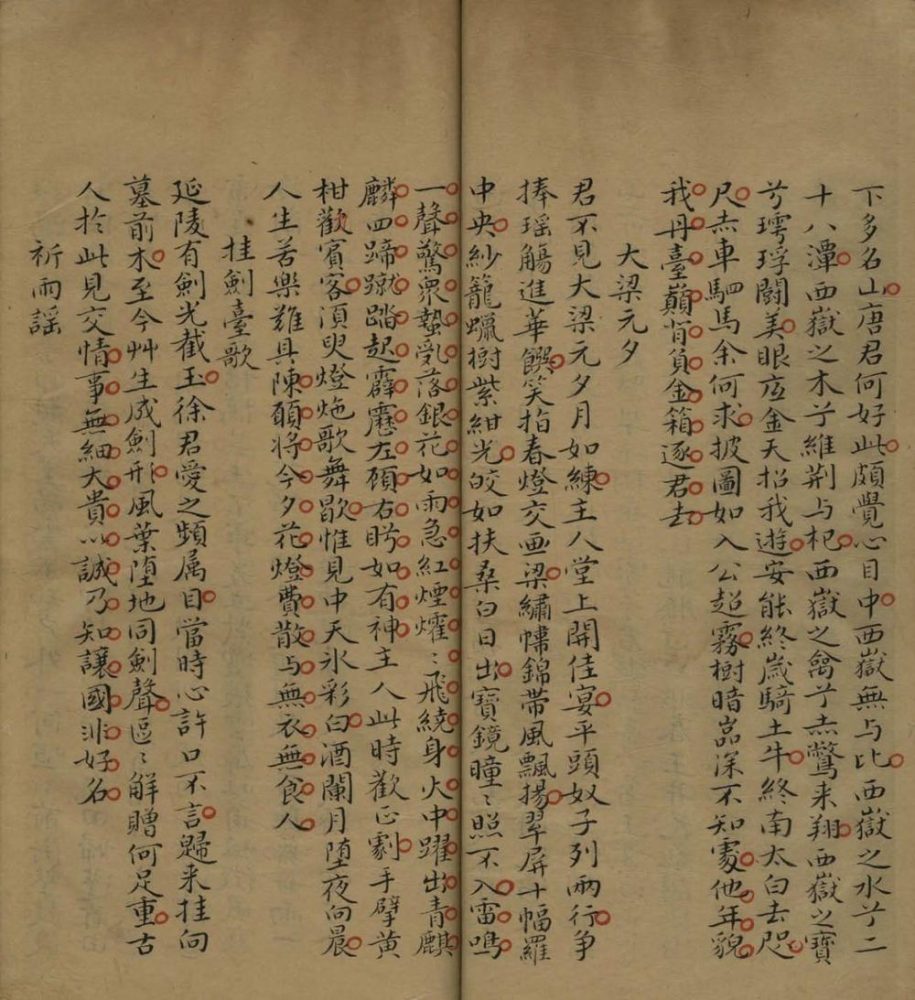 下多名山唐君何好此頗覺心目中西嶽無与比西嶽之水兮二
十八潭西嶽之木兮維荆与杞西嶽之禽兮赤鷩来翔西嶽之寶
兮璕琈闘美眼底金天招我遊安能終歲騎土牛終南太白去咫
尺赤車駟馬余何求披圖如入公超霧樹暗嵓深不知䖏他年貌
我丹臺巔背負金箱逐君去
大梁元夕
君不見大梁元夕月如練主人堂上開佳宴平頭奴子列兩行争
捧瑶觴進華饌笑指春燈交画梁繡幰錦帶風飄揚翠屏十幅羅
中央紗籠蠟樹紫紺光皎如扶桑白日出寶鏡曈〻照不入雷鳴
一聲驚衆蟄乳落銀花如雨急紅煙爚〻飛繞身火中躍出青麒
麟四蹄蹴踏起霹靂左顧右眄如有神主人此時歡正劇手擘黄
柑歡賓客須臾燈灺歌舞歇惟見中天氷彩白酒闌月堕夜向晨
人生苦樂難具陳願將今夕花燈費散与無衣無食人
挂劍臺歌
延陵有劍光截玉徐君愛之頻属目當時心許口不言歸来挂向
墓前木至今艸生成劍形風葉堕地同劍聲區〻解贈何足重古
人扵此見交情事無細大貴以誠乃知讓國非好名
祈雨謡